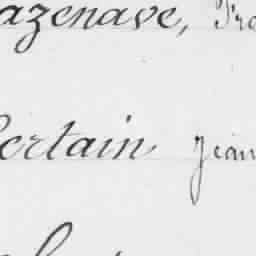 azenave, Fra
ertain Jean